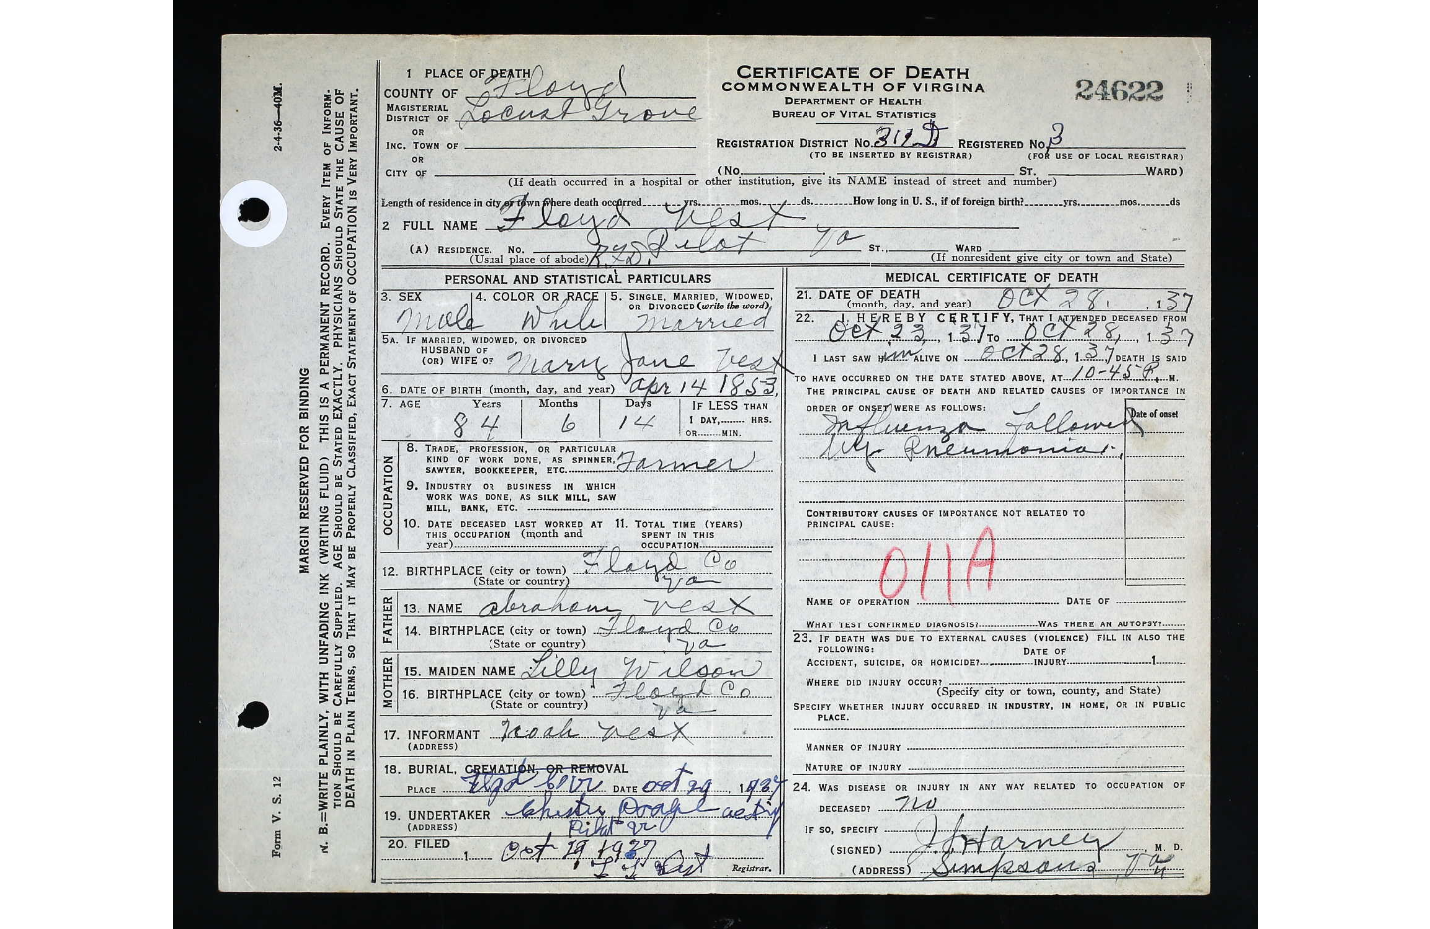 1 PLACE OF DEATH
COUNTY OF Floyd
MAGISTERIAL DISTRICT OF Locust Grove
OR
INC. TOWN OF
OR
CITY OF
CERTIFICATE OF DEATH
COMMONWEALTH OF VIRGINIA
DEPARTMENT OF HEALTH
BUREAU OF VITAL STATISTICS
24622
REGISTRATION DISTRICT No. 311 D REGISTERED No. 3
(TO BE INSERTED BY REGISTRAR) (FOR USE OF LOCAL REGISTRAR)
(No. ST. WARD)
(If death occurred in a hospital or other institution, give its NAME instead of street and number)
Length of residence in city or town where death occurred yrs. mos. ds. How long in U. S., if of foreign birth? yrs. mos. ds
2 FULL NAME Floyd Vest
(A) RESIDENCE. No. R.F.D. Pilot Va ST., WARD
(Usual place of abode) (If nonresident give city or town and State)
PERSONAL AND STATISTICAL PARTICULARS
3. SEX 4. COLOR OR RACE 5. SINGLE, MARRIED, WIDOWED, OR DIVORCED (write the word)
Male White Married
5A. IF MARRIED, WIDOWED, OR DIVORCED
HUSBAND OF
(OR) WIFE OF Mary Jane Vest
6. DATE OF BIRTH (month, day, and year) Apr 14 1853
7. AGE Years Months Days IF LESS THAN
84 6 14 1 DAY, HRS.
OR MIN.
OCCUPATION
8. TRADE, PROFESSION, OR PARTICULAR
KIND OF WORK DONE, AS SPINNER,
SAWYER, BOOKKEEPER, ETC. Farmer
9. INDUSTRY OR BUSINESS IN WHICH
WORK WAS DONE, AS SILK MILL, SAW
MILL, BANK, ETC.
10. DATE DECEASED LAST WORKED AT 11. TOTAL TIME (YEARS)
THIS OCCUPATION (month and SPENT IN THIS
year) OCCUPATION
12. BIRTHPLACE (city or town) Floyd Co
(State or country) Va
FATHER
13. NAME Abraham Vest
14. BIRTHPLACE (city or town) Floyd Co
(State or country) Va
MOTHER
15. MAIDEN NAME Lilly Wilson
16. BIRTHPLACE (city or town) Floyd Co
(State or country) Va
17. INFORMANT Noah Vest
(ADDRESS)
18. BURIAL, CREMATION, OR REMOVAL
PLACE DATE Oct 29, 1937
19. UNDERTAKER
(ADDRESS) Pilot Va
20. FILED Oct 29 1937
Registrar.
MEDICAL CERTIFICATE OF DEATH
21. DATE OF DEATH
(month, day, and year) Oct 28, 137
22. I HEREBY CERTIFY, THAT I ATTENDED DECEASED FROM
Oct 23, 137 TO Oct 28, 137
I LAST SAW him ALIVE ON Oct 28, 137 DEATH IS SAID
TO HAVE OCCURRED ON THE DATE STATED ABOVE, AT 10-45 P. M.
THE PRINCIPAL CAUSE OF DEATH AND RELATED CAUSES OF IMPORTANCE IN
ORDER OF ONSET WERE AS FOLLOWS: Date of onset
Influenza Followed
by Pneumonia
CONTRIBUTORY CAUSES OF IMPORTANCE NOT RELATED TO
PRINCIPAL CAUSE:
011A
NAME OF OPERATION DATE OF
WHAT TEST CONFIRMED DIAGNOSIS? WAS THERE AN AUTOPSY?
23. IF DEATH WAS DUE TO EXTERNAL CAUSES (VIOLENCE) FILL IN ALSO THE
FOLLOWING: DATE OF
ACCIDENT, SUICIDE, OR HOMICIDE? INJURY 1
WHERE DID INJURY OCCUR?
(Specify city or town, county, and State)
SPECIFY WHETHER INJURY OCCURRED IN INDUSTRY, IN HOME, OR IN PUBLIC
PLACE.
MANNER OF INJURY
NATURE OF INJURY
24. WAS DISEASE OR INJURY IN ANY WAY RELATED TO OCCUPATION OF
DECEASED? No
IF SO, SPECIFY
(SIGNED) Harney M. D.
(ADDRESS) Simpsons, Va
2-4-36—40M.
MARGIN RESERVED FOR BINDING
N. B.—WRITE PLAINLY, WITH UNFADING INK (WRITING FLUID) THIS IS A PERMANENT RECORD. EVERY ITEM OF INFORM-
TION SHOULD BE CAREFULLY SUPPLIED. AGE SHOULD BE STATED EXACTLY. PHYSICIANS SHOULD STATE THE CAUSE OF
DEATH IN PLAIN TERMS, SO THAT IT MAY BE PROPERLY CLASSIFIED, EXACT STATEMENT OF OCCUPATION IS VERY IMPORTANT.
Form V. S. 12